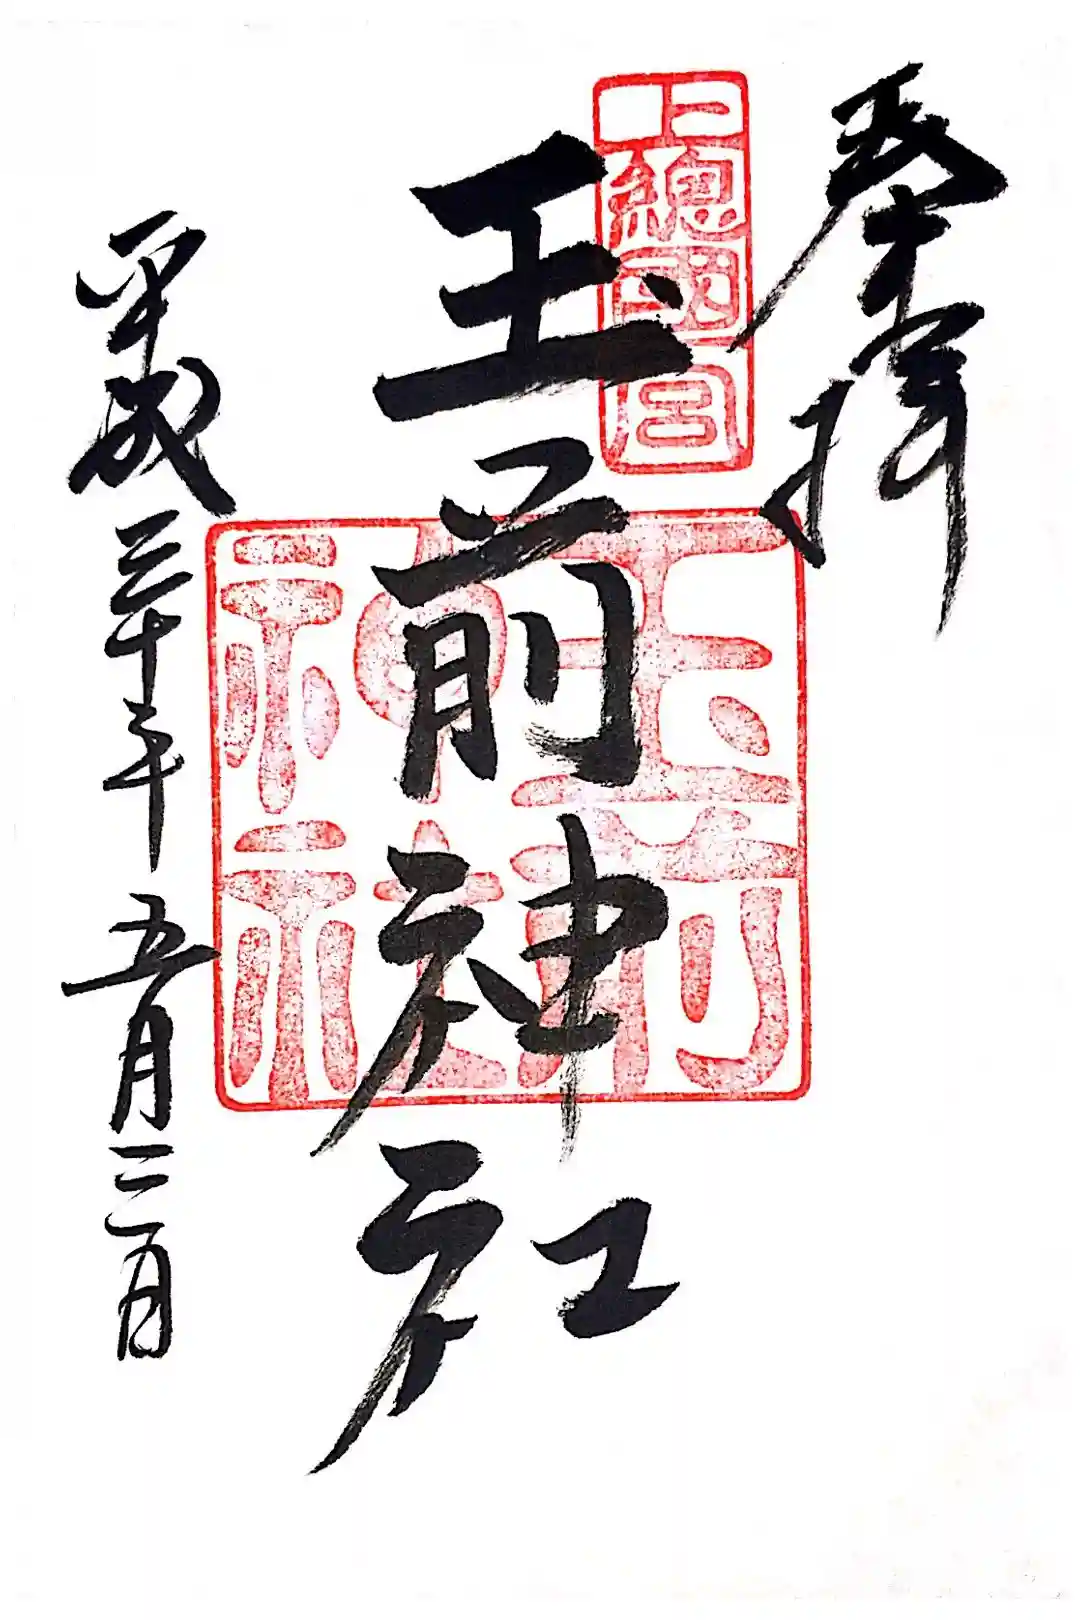 奉拝
上總國一宮
玉前神社
玉前神社
平成三十年五月三日